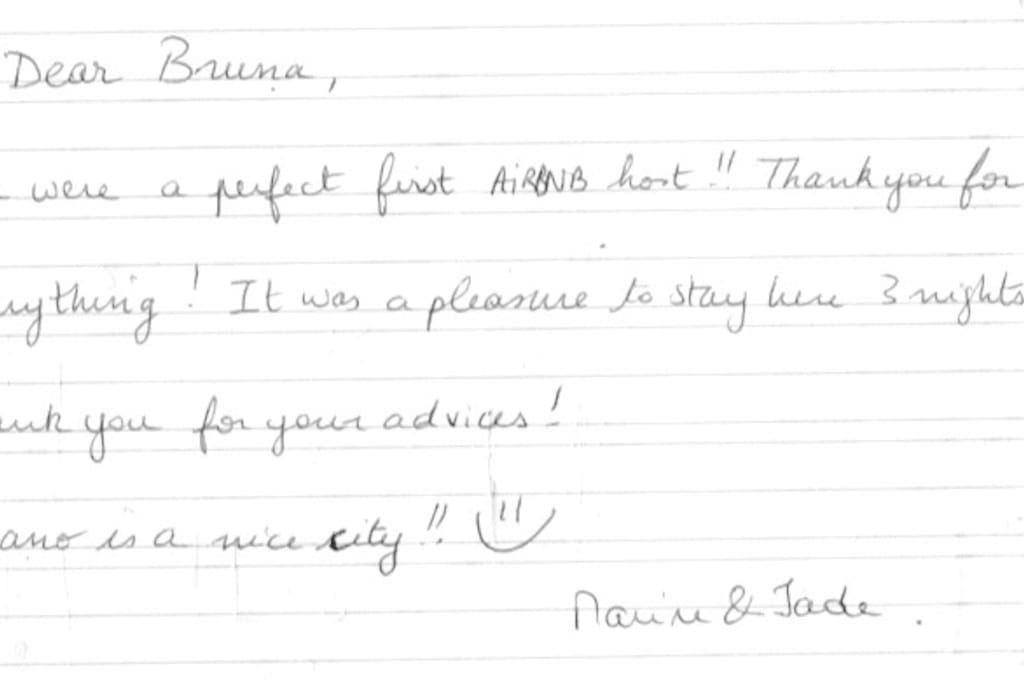 Dear Bruna,
were a perfect first AiRBNB host!! Thank you for
rything! It was a pleasure to stay here 3 nights
ank you for your advices!
ano is a nice city!!
Marine & Jade.